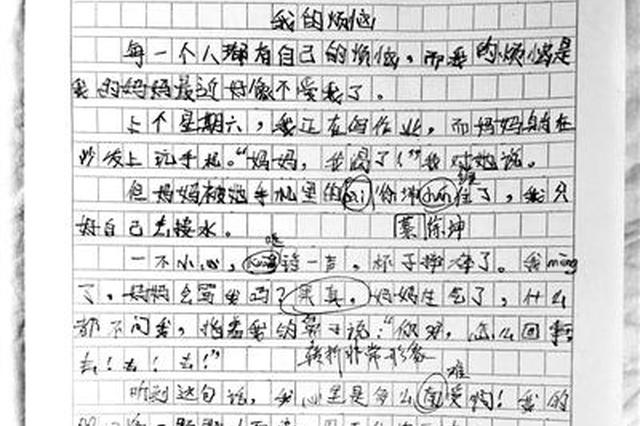 我的烦恼
每一个人都有自己的烦恼，而我的烦恼是
我的妈妈最近好像不爱我了。
上个星期六，我正在写作业，而妈妈躺在
沙发上玩手机。“妈妈，我渴了！”我对她说。
但妈妈被她手机里的cai你坤chán住了，我只
好自己去接水。 蔡徐坤
一不小心， 一声，杯子摔碎了。我mīng
了，妈妈会骂我吗？果真，妈妈生气了，什么
都不问我，指着我的鼻子说：“你呀，怎么回事
去！去！去！” 转折非常形象
听到这句话，我心里是多么南受啊！我的 难